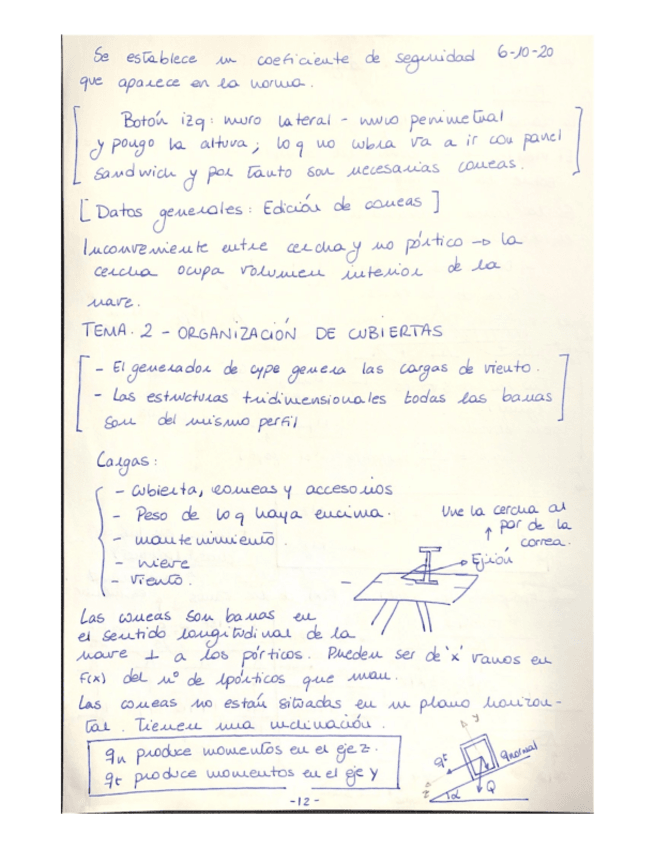 Se establece un coeficiente de seguridad 6-10-20
que aparece en la norma.
Botón izq: muro lateral - muro perimetral
y pongo la altura; lo q no cubra va a ir con panel
sandwich y por tanto son necesarias correas.
[Datos generales: Edición de correas]
Inconveniente entre cercha y no pórtico → la
cercha ocupa volumen interior de la
nave.
TEMA. 2 - ORGANIZACIÓN DE CUBIERTAS
- El generador de cype genera las cargas de viento.
- Las estructuras tridimensionales todas las barras
son del mismo perfil
Cargas:
- cubierta, correas y accesorios
- Peso de lo q haya encima.
- mantenimiento.
- nieve
- viento.
Une la cercha al
par de la
correa.
Ejión
Las correas son barras en
el sentido longitudinal de la
nave ⊥ a los pórticos. Pueden ser de 'x' vanos en
F(x) del nº de pórticos que
Las correas no están situadas en un plano horizon-
tal. Tienen una inclinación.
qn produce momentos en el eje z.
qt produce momentos en el eje y
y
qt
qnormal
z
α
Q
-12-